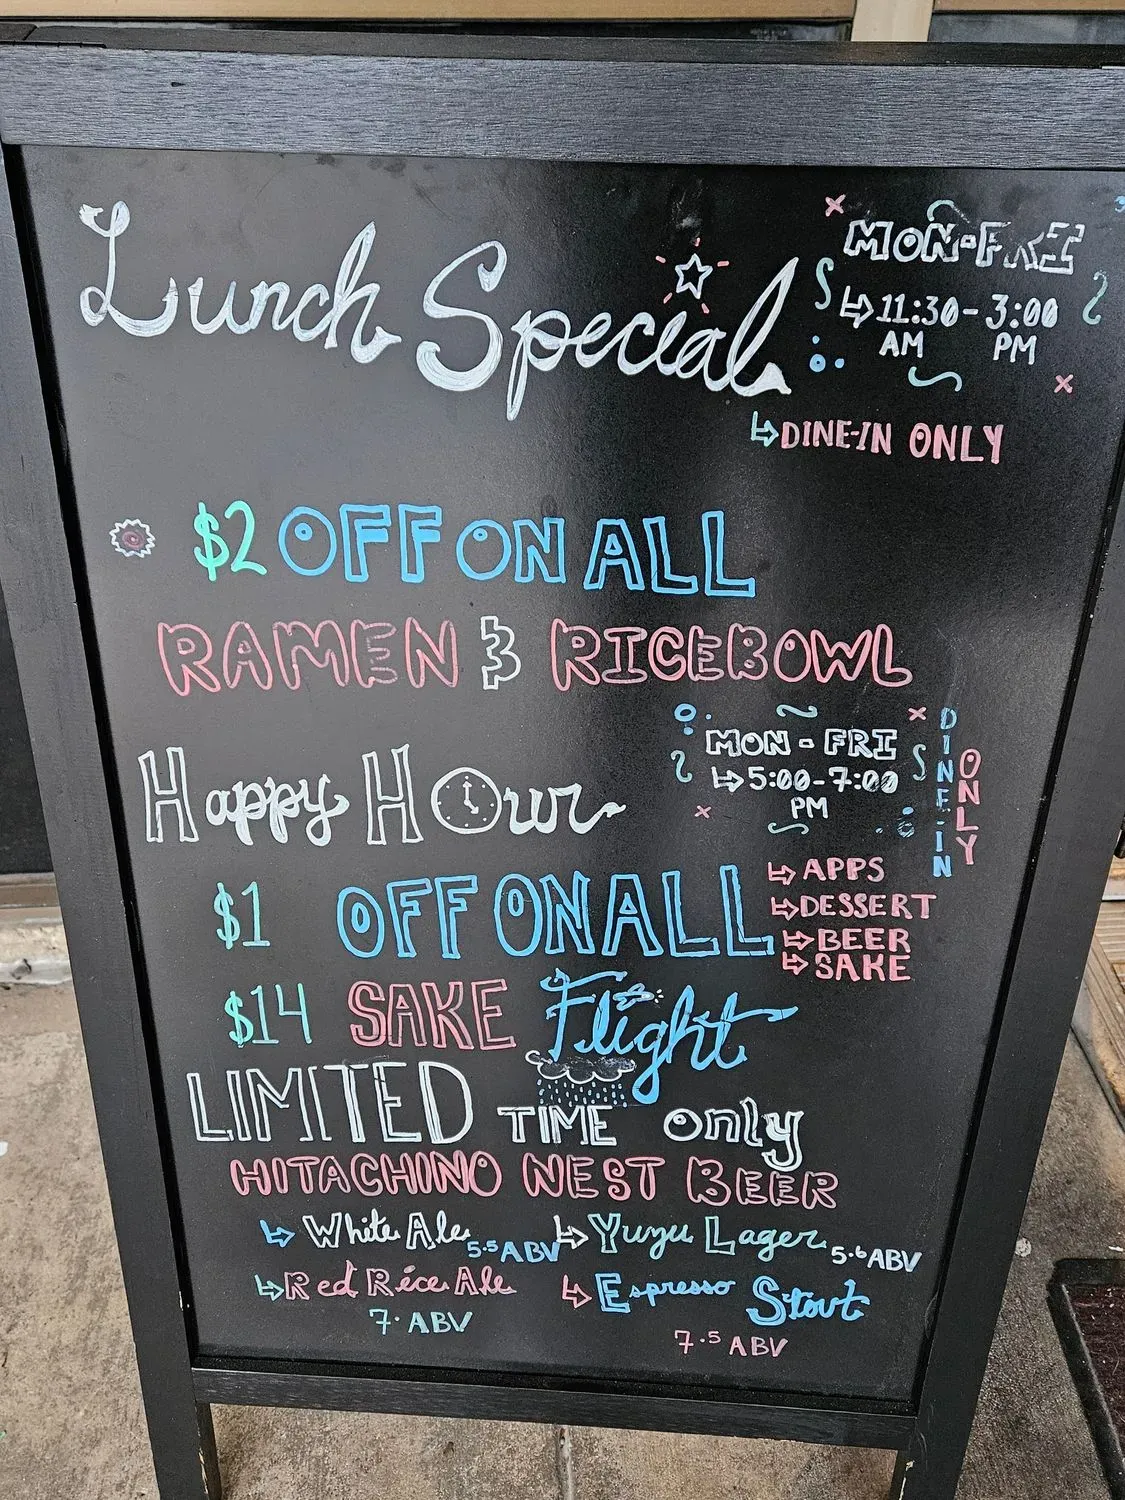 Lunch Special
MON-FRI
11:30-3:00
AM PM
DINE-IN ONLY
$2 OFF ON ALL
RAMEN & RICEBOWL
Happy Hour
MON-FRI
5:00-7:00
PM
DINE-IN
ONLY
$1 OFF ON ALL
APPS
DESSERT
BEER
SAKE
$14 SAKE Flight
LIMITED TIME only
HITACHINO NEST BEER
White Ale 5.5 ABV
Yuzu Lager 5.6 ABV
Red Rice Ale
7. ABV
Espresso Stout
7.5 ABV